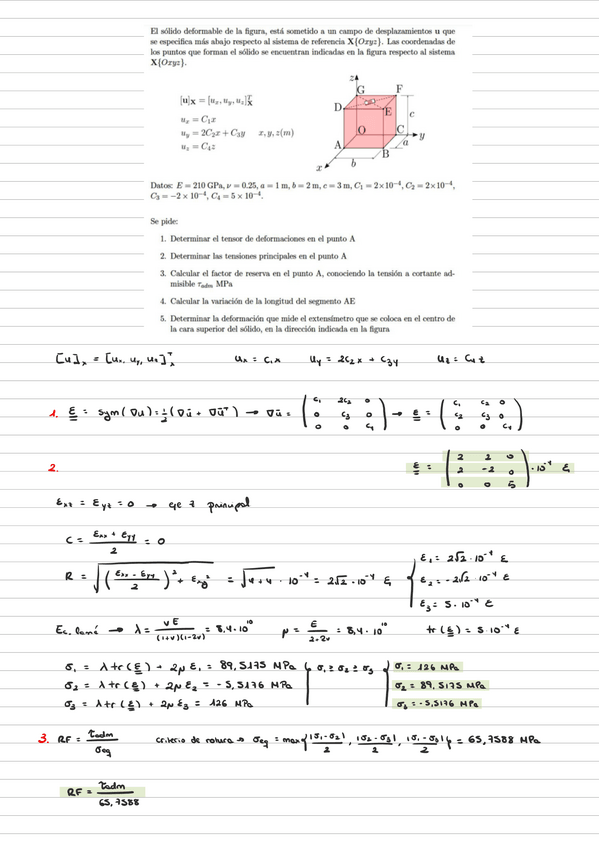 El sólido deformable de la figura, está sometido a un campo de desplazamientos u que
se especifica más abajo respecto al sistema de referencia X{Oxyz}. Las coordenadas de
los puntos que forman el sólido se encuentran indicadas en la figura respecto al sistema
X{Oxyz}.
[u]_X = [u_x, u_y, u_z]^T_X
u_x = C_1x
u_y = 2C_2x + C_3y   x, y, z(m)
u_z = C_4z
z
G F
D E
c
O C y
A a
B
x b
Datos: E = 210 GPa, ν = 0.25, a = 1 m, b = 2 m, c = 3 m, C_1 = 2×10^-4, C_2 = 2×10^-4,
C_3 = −2 × 10^-4, C_4 = 5 × 10^-4.
Se pide:
1. Determinar el tensor de deformaciones en el punto A
2. Determinar las tensiones principales en el punto A
3. Calcular el factor de reserva en el punto A, conociendo la tensión a cortante ad-
misible τ_adm MPa
4. Calcular la variación de la longitud del segmento AE
5. Determinar la deformación que mide el extensímetro que se coloca en el centro de
la cara superior del sólido, en la dirección indicada en la figura
[u]_x = [u_x, u_y, u_z]^T_x   u_x = c_1x   u_y = 2c_2x + c_3y   u_z = c_4z
1. ε = sym(∇u) = 1/2 (∇ū + ∇ū^T) → ∇ū = (c_1 2c_2 0 / 0 c_3 0 / 0 0 c_4) → ε = (c_1 c_2 0 / c_2 c_3 0 / 0 0 c_4)
2. ε = (2 2 0 / 2 -2 0 / 0 0 5) · 10^-4 ε
ε_xz = ε_yz = 0 → eje z principal
C = (ε_xx + ε_yy)/2 = 0
R = √(((ε_xx - ε_yy)/2)^2 + ε_xy^2) = √(4+4) · 10^-4 = 2√2 · 10^-4 ε { ε_1 = 2√2 · 10^-4 ε
ε_2 = -2√2 · 10^-4 ε
ε_3 = 5 · 10^-4 ε
Ec. lamé → λ = νE/((1+ν)(1-2ν)) = 8,4 · 10^10   μ = E/(2+2ν) = 8,4 · 10^10   tr(ε) = 5 · 10^-4 ε
σ_1 = λ tr(ε) + 2μ ε_1 = 89,5175 MPa   σ_1 ≥ σ_2 ≥ σ_3   σ_1 = 126 MPa
σ_2 = λ tr(ε) + 2μ ε_2 = -5,5176 MPa   σ_2 = 89,5175 MPa
σ_3 = λ tr(ε) + 2μ ε_3 = 126 MPa   σ_3 = -5,5176 MPa
3. RF = τ_adm/σ_eq   criterio de rotura → σ_eq = max{|σ_1-σ_2|/2, |σ_2-σ_3|/2, |σ_1-σ_3|/2} = 65,7588 MPa
RF = τ_adm/65,7588